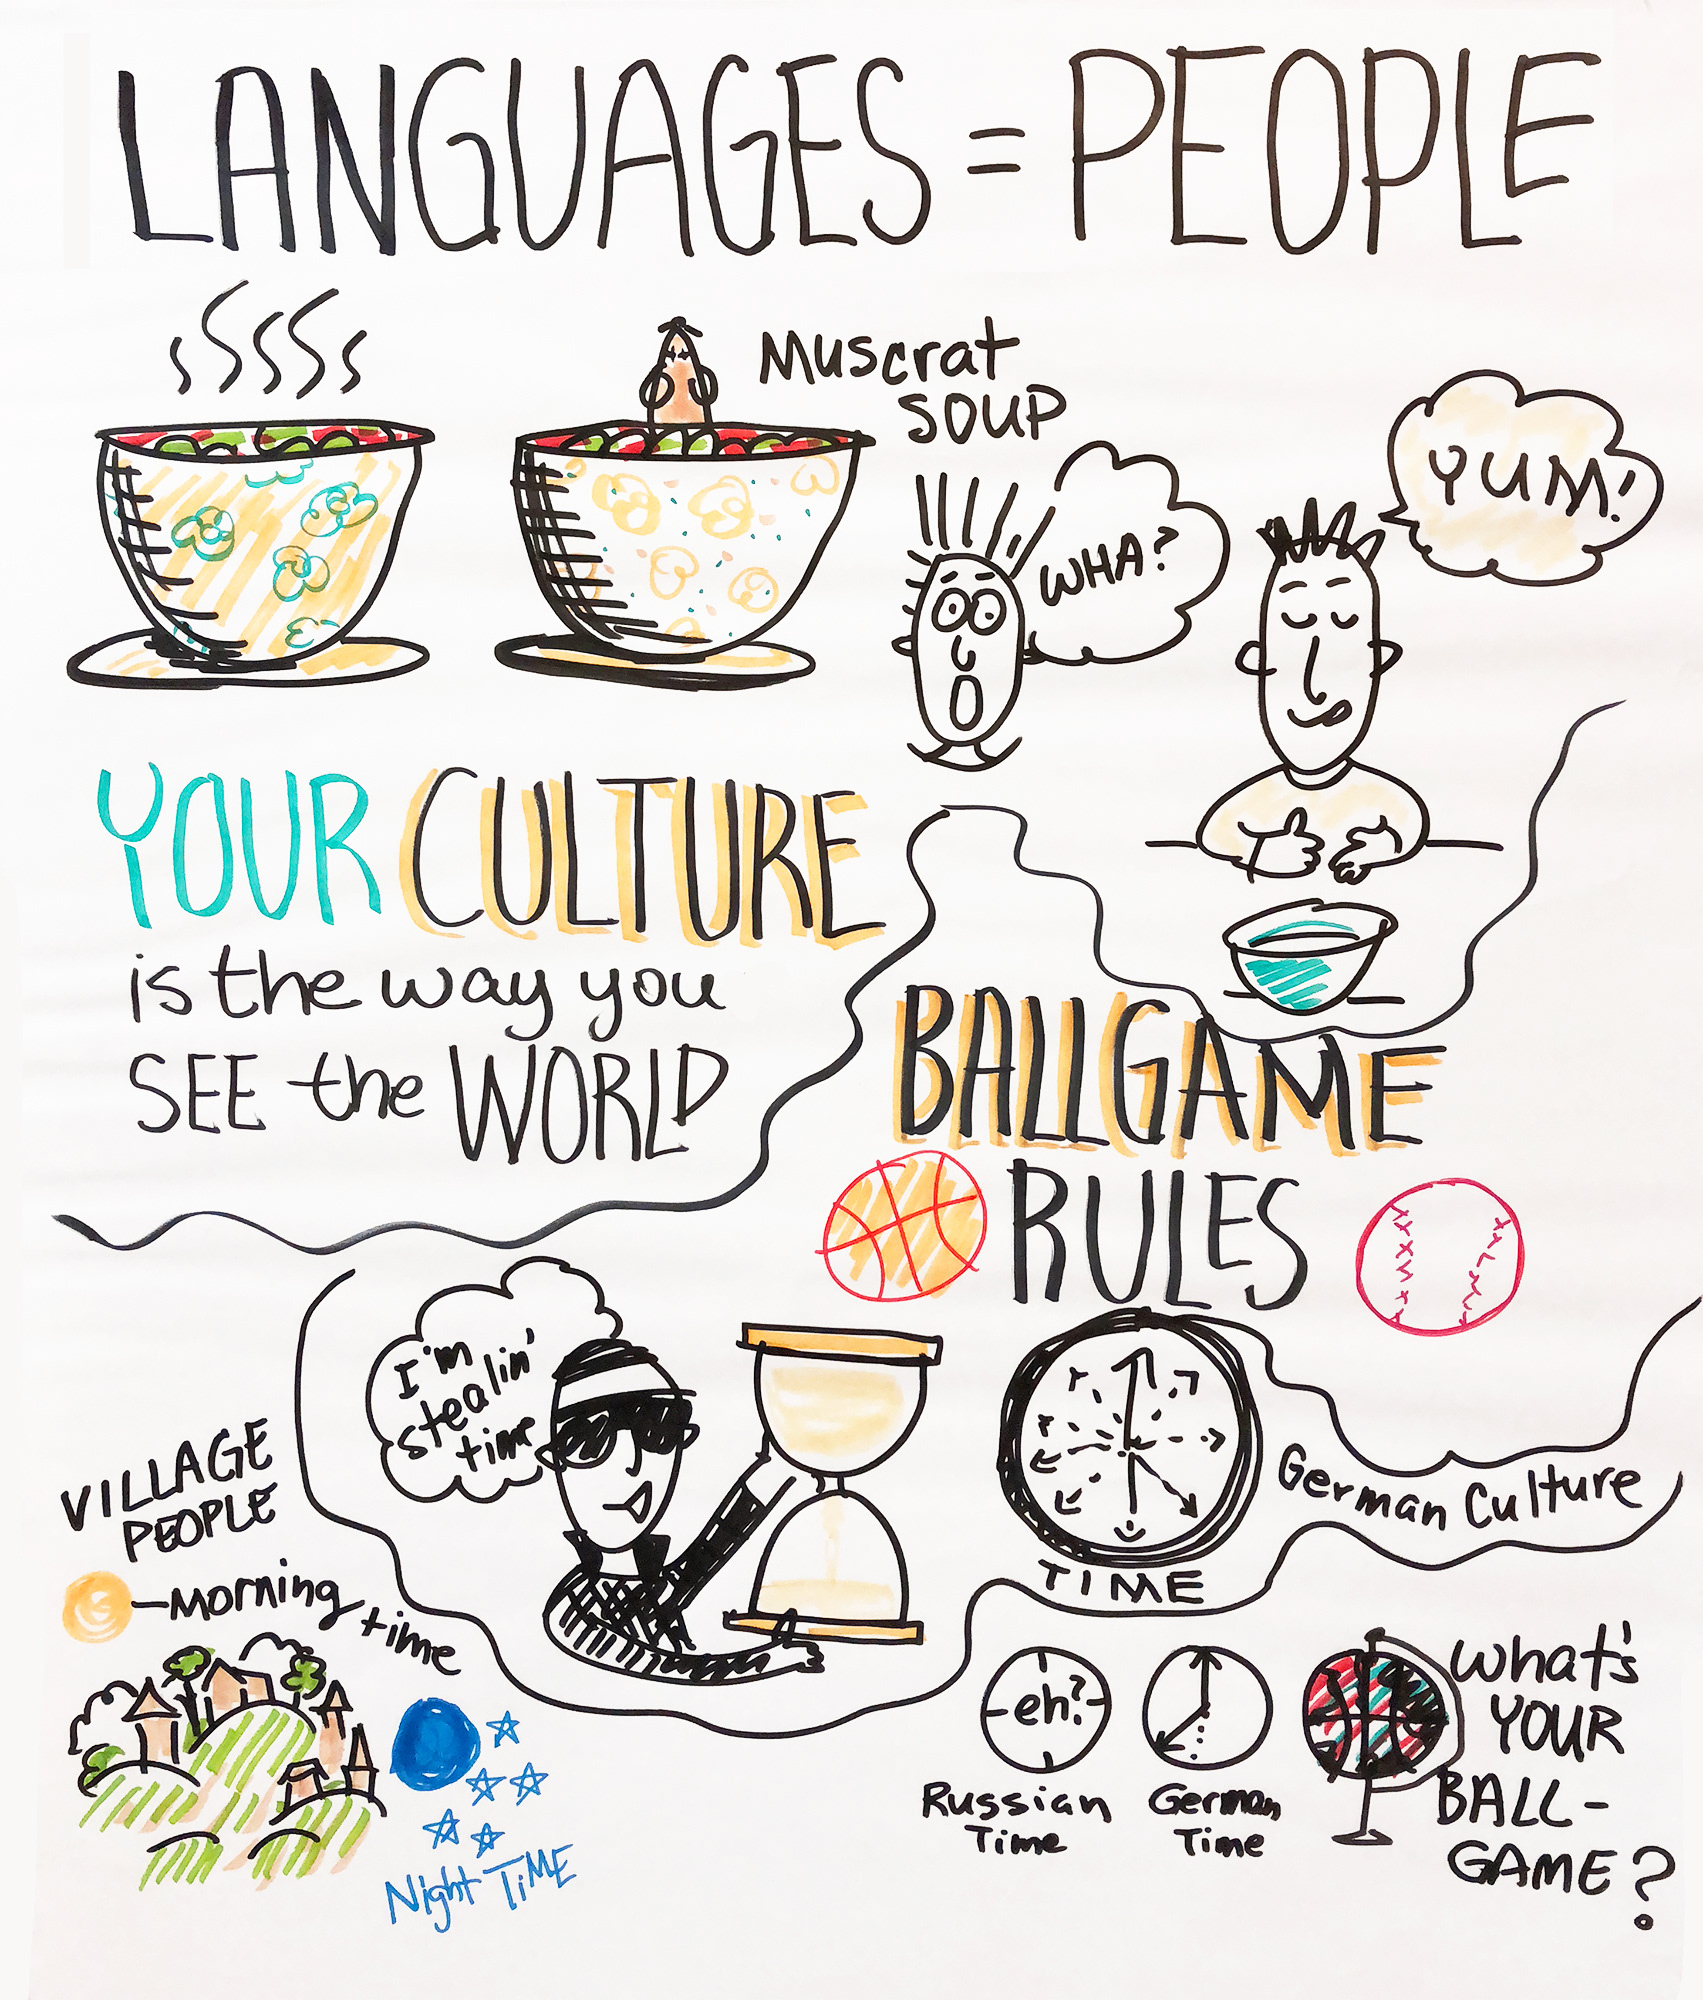 LANGUAGES = PEOPLE
Muscrat
SOUP
WHA?
YUM!
YOUR CULTURE
is the way you
SEE the WORLD
BALLGAME
RULES
I'm
stealin'
time
VILLAGE
PEOPLE
Morning
time
Night TiME
German Culture
TIME
eh?
Russian
Time
German
Time
What's
YOUR
BALL-
GAME?